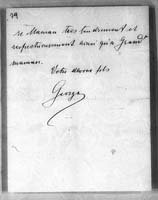 79
se Maman très tendrement et
respectueusement ainsi qu'a Grand
maman.
Votre devoué fils
George